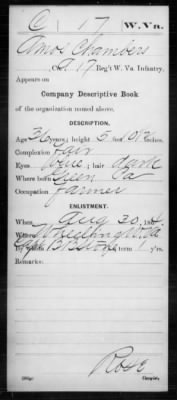 C | 17 | W. Va.
Amos Chambers
, Co. A, 17 Reg't W. Va. Infantry.
Appears on
Company Descriptive Book
of the organization named above.
DESCRIPTION.
Age 36 years; height 5 feet 10½ inches.
Complexion Fair
Eyes Blue; hair Dark
Where born Green Pa
Occupation Farmer
ENLISTMENT.
When Aug 30, 1864
Where Wheeling W Va
By whom Capt B B ; term 1 y'rs.
Remarks:
Rose
Copyist.